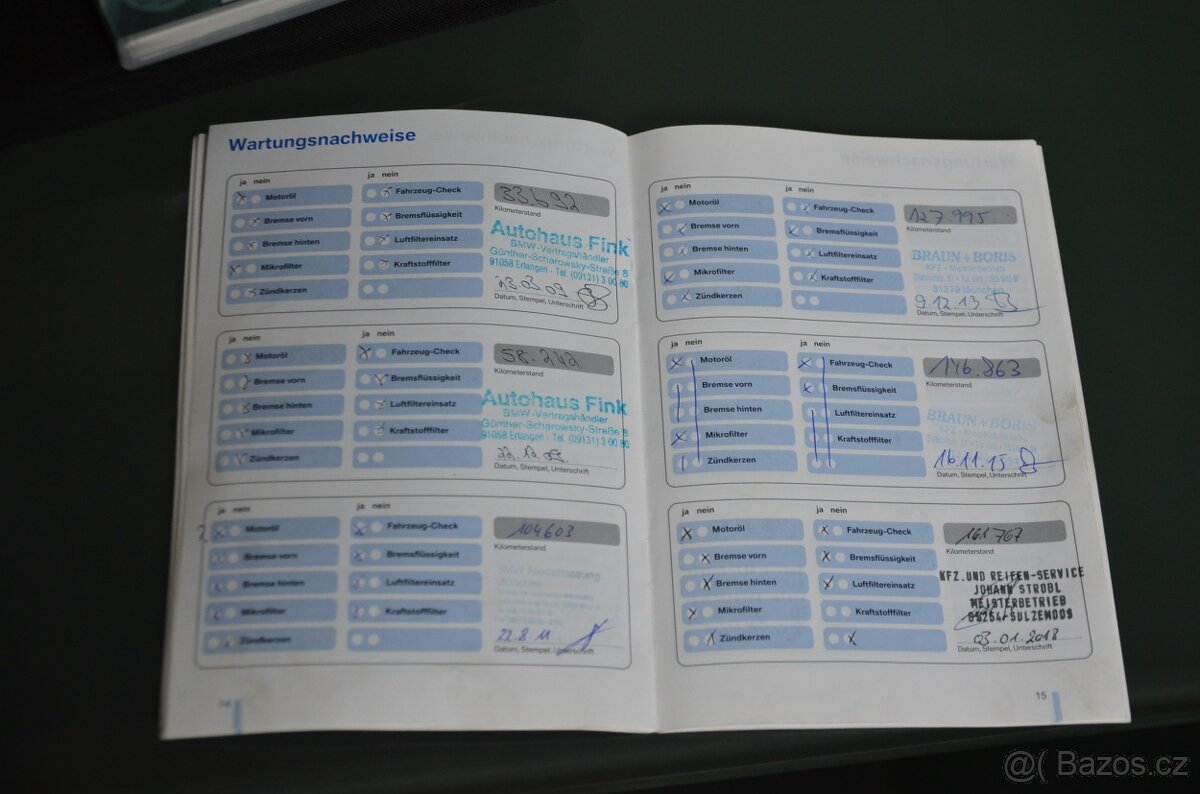 Wartungsnachweise
ja nein
ja nein
Motoröl
Fahrzeug-Check
33.692
Bremse vorn
Bremsflüssigkeit
Kilometerstand
Bremse hinten
Luftfiltereinsatz
Mikrofilter
Kraftstofffilter
Zündkerzen
Autohaus Fink
BMW-Vertragshändler
Günther-Scharowsky-Straße 8
91058 Erlangen - Tel. (09131) 3 00 80
23.03.09
Datum, Stempel, Unterschrift
ja nein
ja nein
Motoröl
Fahrzeug-Check
58.242
Bremse vorn
Bremsflüssigkeit
Kilometerstand
Bremse hinten
Luftfiltereinsatz
Mikrofilter
Kraftstofffilter
Zündkerzen
Autohaus Fink
BMW-Vertragshändler
Günther-Scharowsky-Straße 8
91058 Erlangen - Tel. (09131) 3 00 80
Datum, Stempel, Unterschrift
ja nein
ja nein
Motoröl
Fahrzeug-Check
104603
Bremse vorn
Bremsflüssigkeit
Kilometerstand
Bremse hinten
Luftfiltereinsatz
Mikrofilter
Kraftstofffilter
Zündkerzen
BMW Niederlassung
München
22.8 11
Datum, Stempel, Unterschrift
14
ja nein
ja nein
Motoröl
Fahrzeug-Check
127.995
Bremse vorn
Bremsflüssigkeit
Kilometerstand
Bremse hinten
Luftfiltereinsatz
Mikrofilter
Kraftstofffilter
Zündkerzen
BRAUN + BORIS
KFZ - Meisterbetrieb
81379 München
9.12.13
Datum, Stempel, Unterschrift
ja nein
ja nein
Motoröl
Fahrzeug-Check
146.863
Bremse vorn
Bremsflüssigkeit
Kilometerstand
Bremse hinten
Luftfiltereinsatz
Mikrofilter
Kraftstofffilter
Zündkerzen
BRAUN + BORIS
16.11.15
Datum, Stempel, Unterschrift
ja nein
ja nein
Motoröl
Fahrzeug-Check
161767
Bremse vorn
Bremsflüssigkeit
Kilometerstand
Bremse hinten
Luftfiltereinsatz
Mikrofilter
Kraftstofffilter
Zündkerzen
KFZ.UND REIFEN-SERVICE
JOHANN STROBL
MEISTERBETRIEB
85254 SULZEMOOS
03.01.2018
Datum, Stempel, Unterschrift
15
@( Bazos.cz